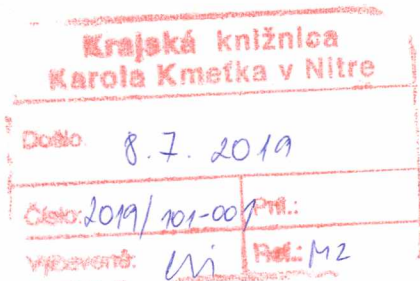 Krajská knižnica
Karola Kmeťka v Nitre
Došlo 8.7. 2019
Číslo: 2019/101-001 Pril.:
Vybavené: Ref.: M2